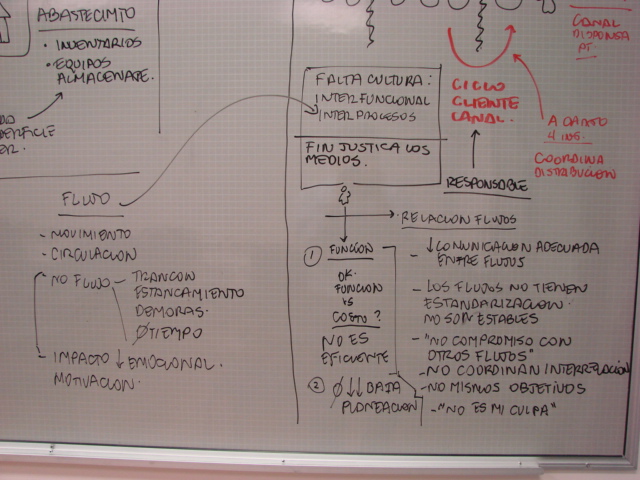 ABASTECIMTO
• INVENTARIOS
• EQUIPOS
ALMACENATE.
FLUJO
- MOVIMIENTO
- CIRCULACION
- NO FLUJO - TRANCON
ESTANCAMIENTO
DEMORAS.
ØTIEMPO
- IMPACTO ↓ EMOCIONAL.
MOTIVACION.
FALTA CULTURA:
INTERFUNCIONAL
INTERPROCESOS
FIN JUSTICA LOS
MEDIOS.
CICLO
CLIENTE
CANAL.
RESPONSABLE
CANAL
A CARTO
COORDINA
DISTRIBUCION
RELACION FLUJOS
① FUNCION
OK.
FUNCION
VS
COSTO?
NO ES
EFICIENTE
② Ø↓↓ BAJA
PLANEACION
- ↓ COMUNICACION ADECUADA
ENTRE FLUJOS
- LOS FLUJOS NO TIENEN
ESTANDARIZACION.
NO SON ESTABLES
- "NO COMPROMISO CON
OTROS FLUJOS"
- NO COORDINAN INTERRELACION
- NO MISMOS OBJETIVOS
- "NO ES MI CULPA"